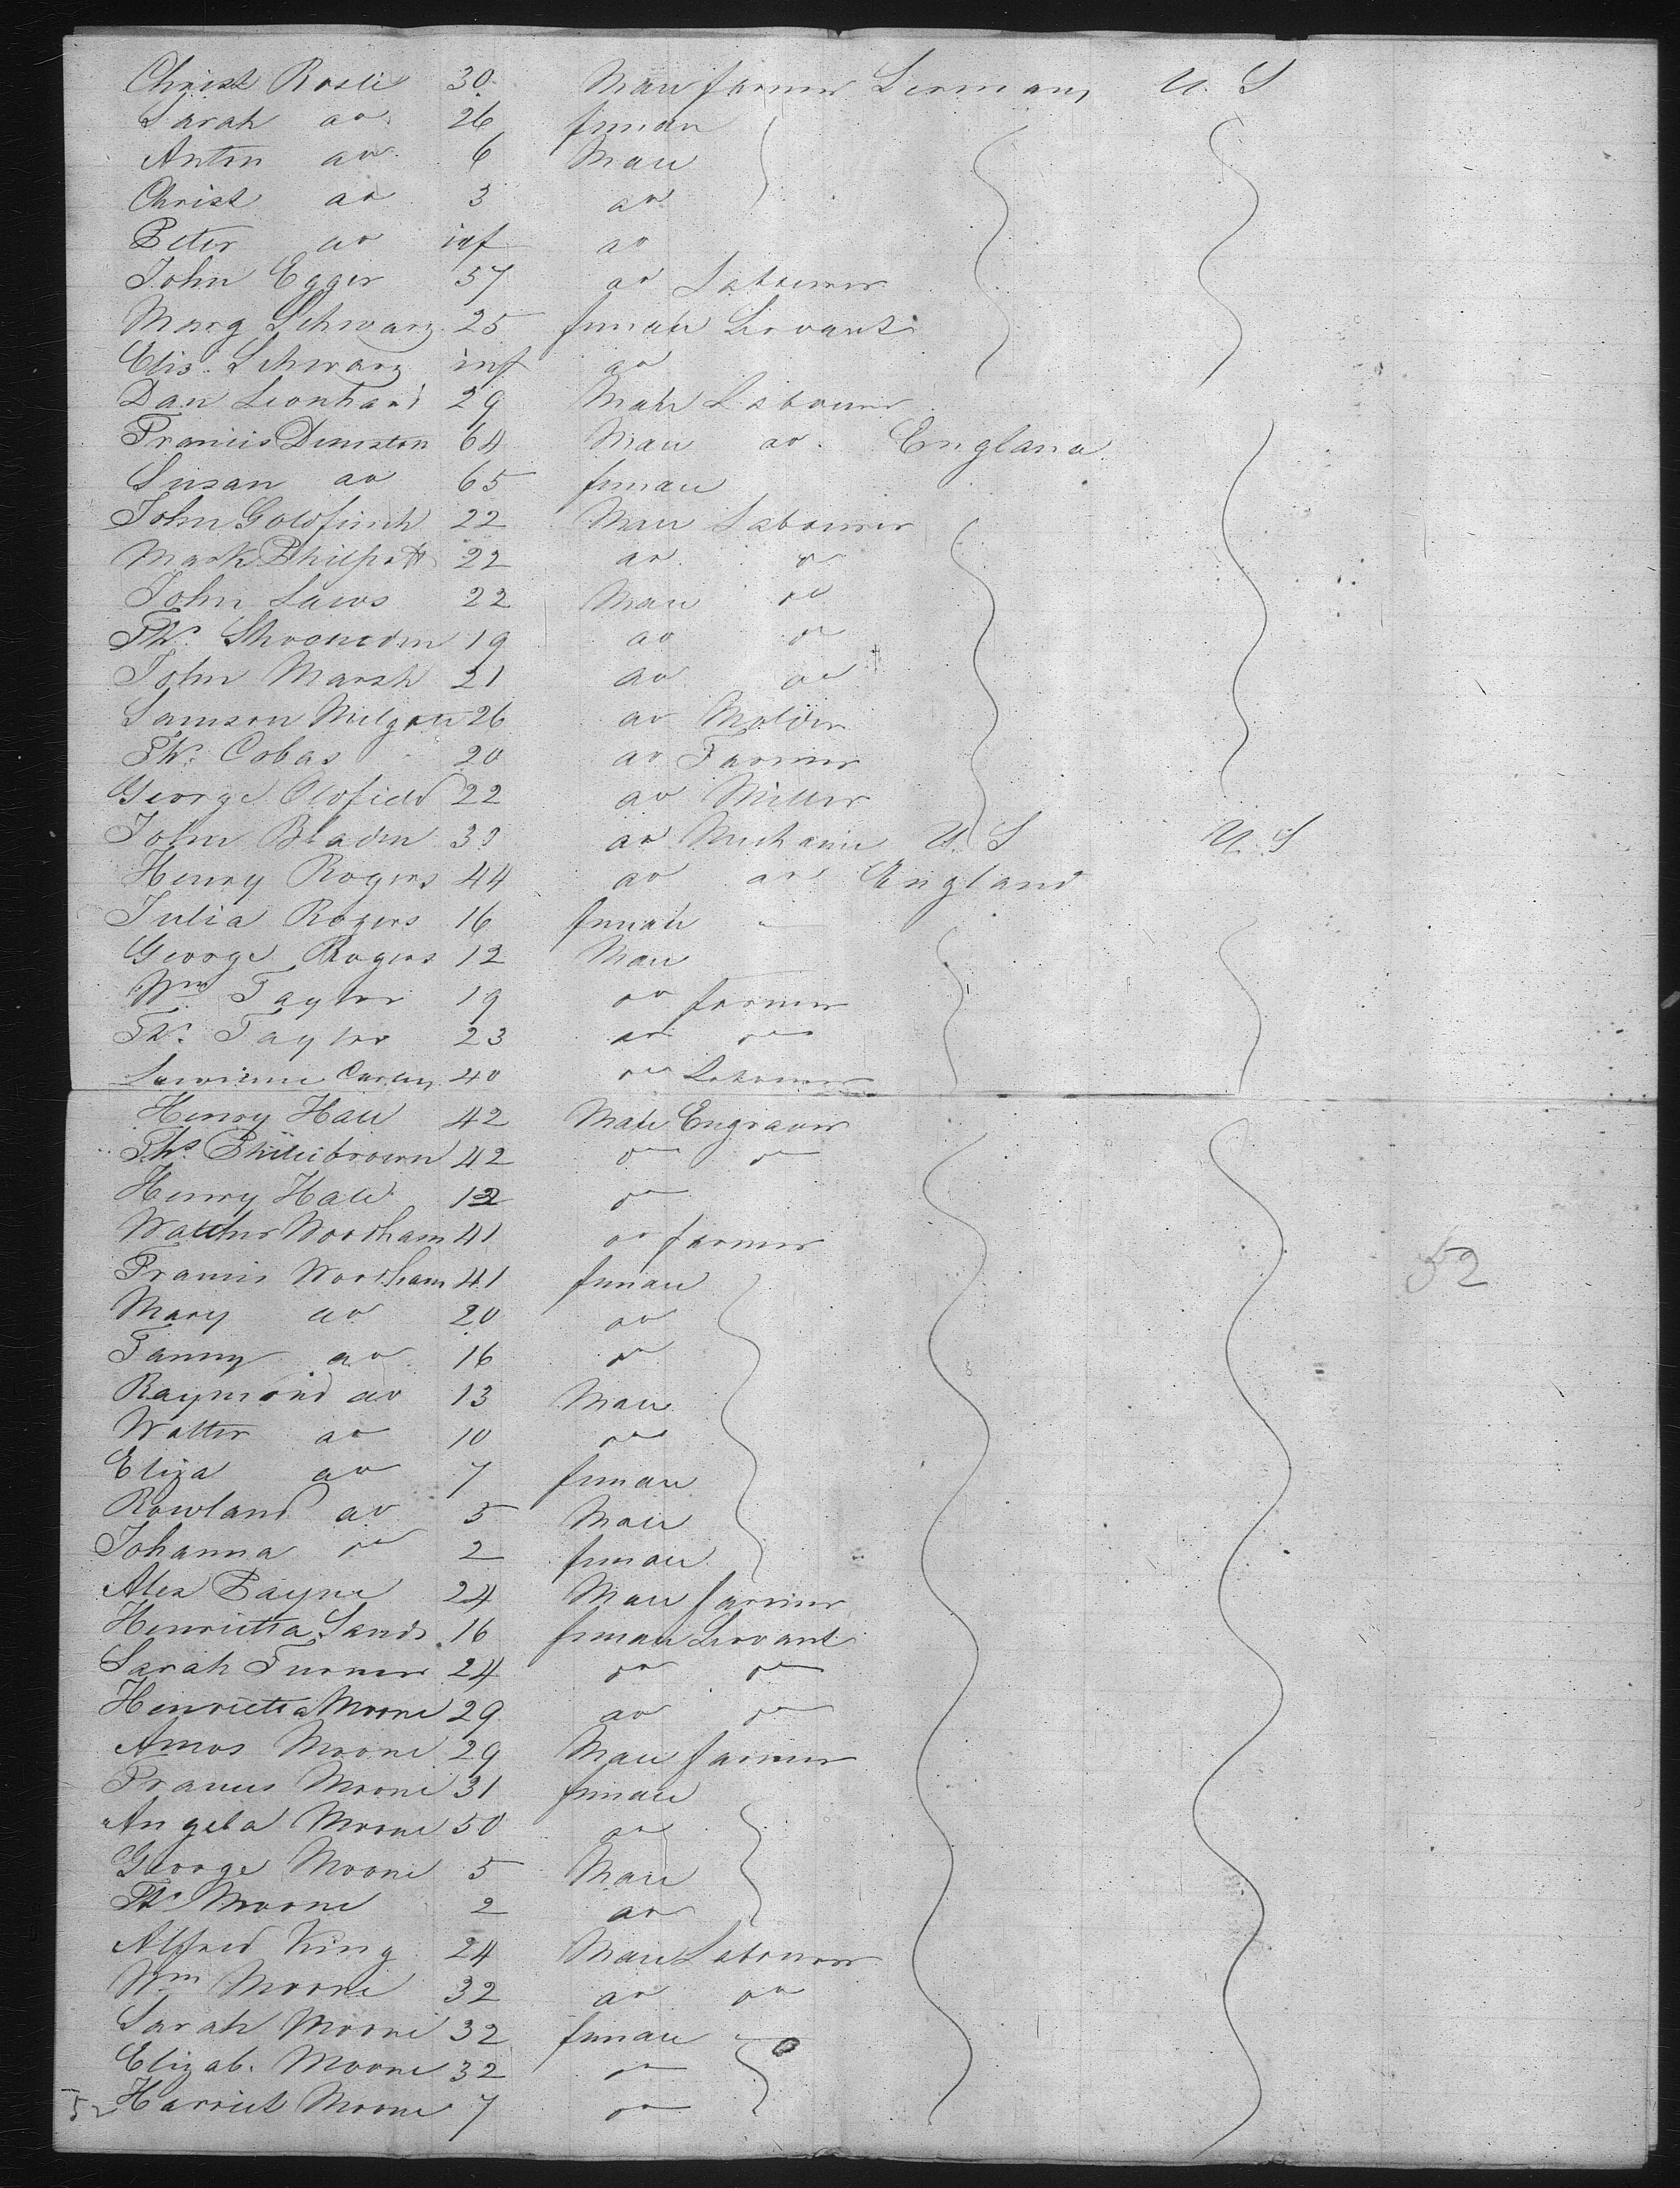 Christ Rosli 30 Male farmer Germany U. S
Sarah do 26 female
Anton do 6 Male
Christ do 3 do
Peter do inf do
John Egger 57 do Labourer
Marg Schwarz 25 female Servant
Elis. Schwarz inf do
Dan Leonhard 29 Male Labourer
Francis 64 Male do England
Susan do 65 female
John Goldfinch 22 Male Labourer
Mark Philpott 22 do do
John Laws 22 Male do
Ths. 19 do do
John Marsh 21 do do
Samson 26 do Molder
Ths. Cobas 20 do Farmer
George Oldfield 22 do Miller
John Bladen do Mechanic U. S U. S
Henry Rogers 44 do do England
Julia Rogers 16 female
George Rogers 12 Male
Wm Taylor 19 do farmer
Ths. Taylor 23 do do
Lawrence 40 do Labourer
Henry Hall 42 Male Engraver
Ths. Phillibrown 42 do do
Henry Hall 12 do
Walther Woodham 41 do farmer
Francis Woodham 41 female
Mary do 20 do
Fanny do 16 do
Raymond do 13 Male
Walter do 10 do
Eliza do 7 female
Rowland do 5 Male
Johanna do 2 female
Alex Payne 24 Male farmer
Henrietta Sands 16 female Servant
Sarah Turner 24 do do
Henrietta Moone 29 do do
Amos Moone 29 Male farmer
Frances Moone 31 female
Angela Moone 50 do
George Moone 5 Male
Ths Moone 2 do
Alfred King 24 Male Labourer
Wm Moone 32 do do
Sarah Moone 32 female
Elizab. Moone 32 do
Harriet Moone 7 do
52
52